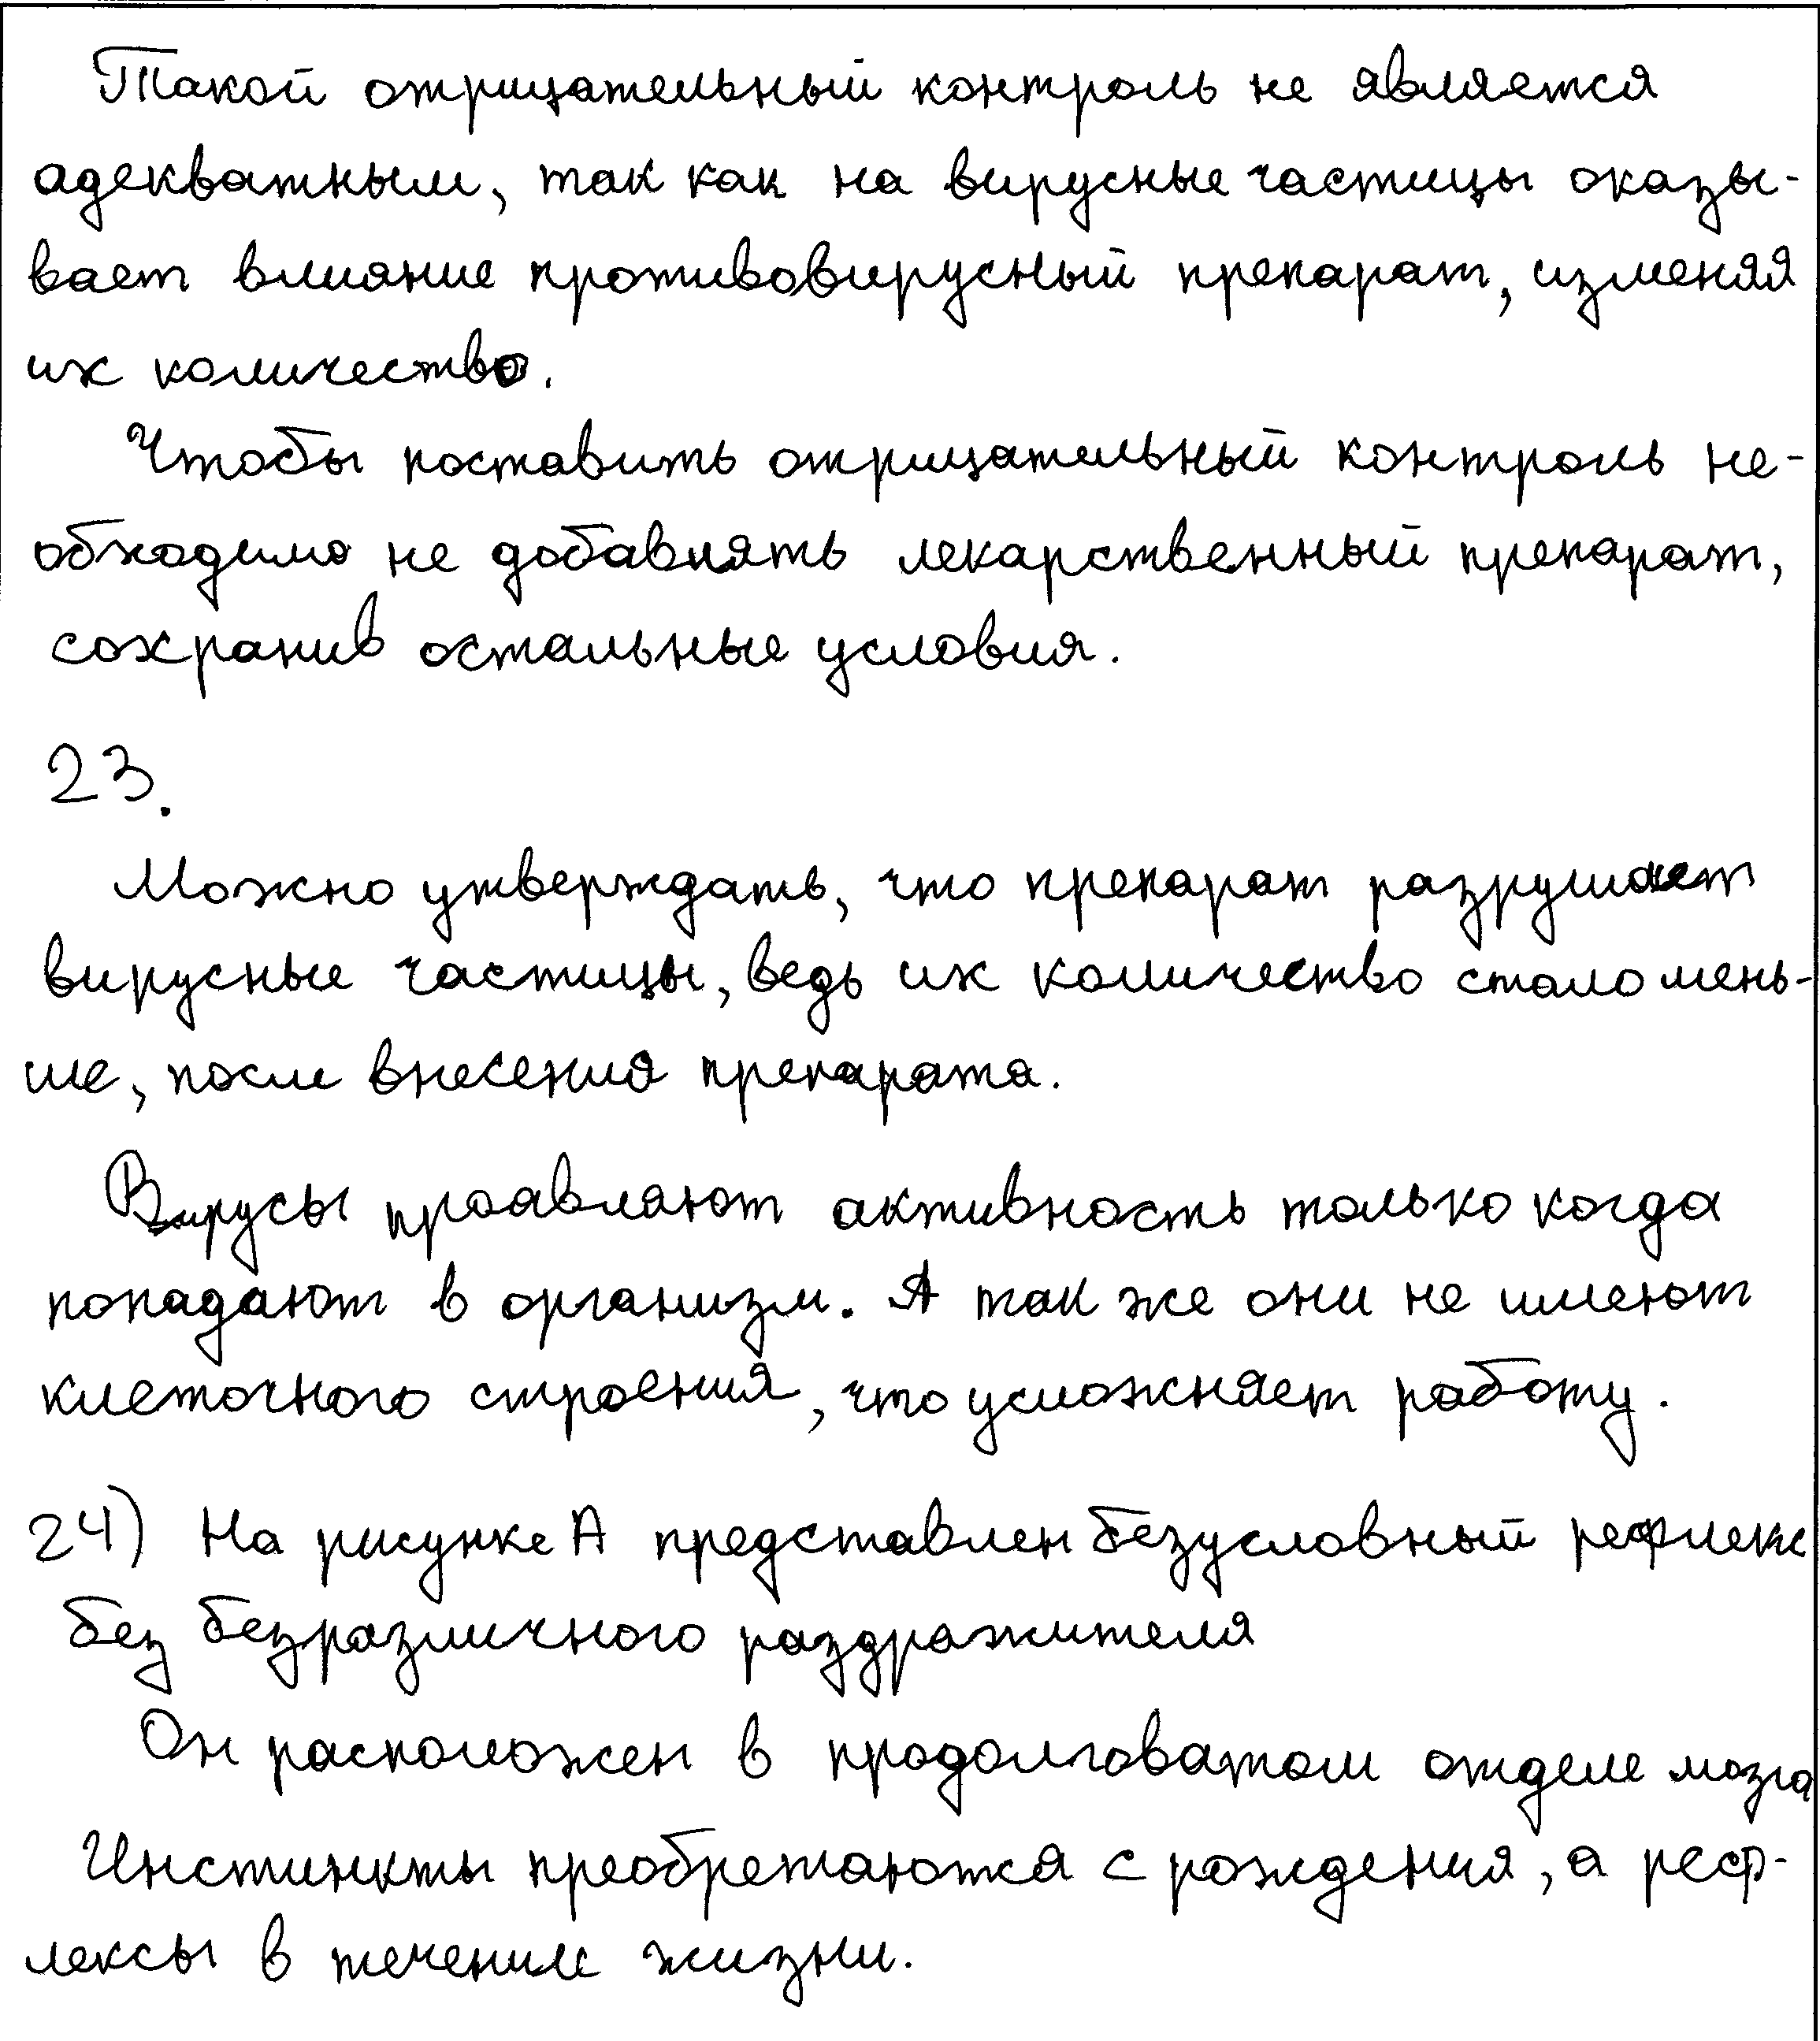 Такой отрицательный контроль не является
адекватным, так как на вирусные частицы оказы-
вает влияние противовирусный препарат, изменяя
их количество.
Чтобы поставить отрицательный контроль не-
обходимо не добавлять лекарственный препарат,
сохранив остальные условия.
23.
Можно утверждать, что препарат разрушает
вирусные частицы, ведь их количество стало мень-
ше, после внесения препарата.
Вирусы проавляют активность только когда
попадают в организм. А так же они не имеют
клеточного строения, что усложняет работу.
24) На рисунке А представлен безусловный рефлекс
без безразличного раздражителя
Он расположен в продолговатом отделе мозга
Инстинкты преобретаются с рождения, а реф-
лексы в течении жизни.